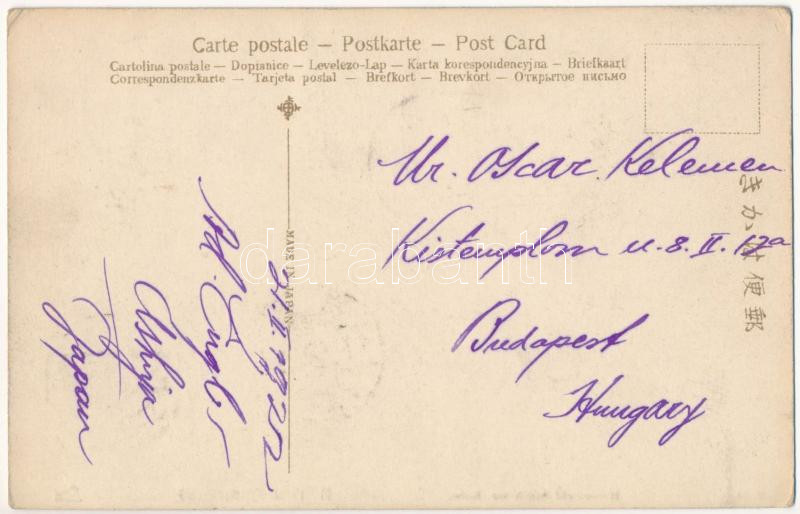 Carte postale – Postkarte – Post Card
Cartolina postale – Dopisnice – Levelezo-Lap – Karta korespondencyjna – Briefkaart
Correspondenzkarte – Tarjeta postal – Brefkort – Brevkort – Открытое письмо
MADE IN JAPAN
きかは便郵
Mr. Oscar Kelemen
Kistemplom u. 8. II. 17a
Budapest
Hungary
II. 1922
Ashiya
Japan
darabanth